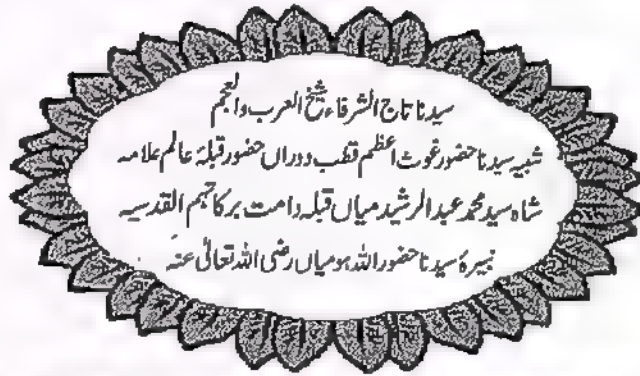 سیدنا تاج الشرفاء شیخ العرب والعجم
شبیہ سیدنا حضور غوث اعظم قطب دوراں حضور قبلۂ عالم علامہ
شاہ سید محمد عبد الرشید میاں قبلہ دامت برکاتہم القدسیہ
نبیرۂ سیدنا حضور اللہ ہو میاں رضی اللہ تعالٰی عنہ